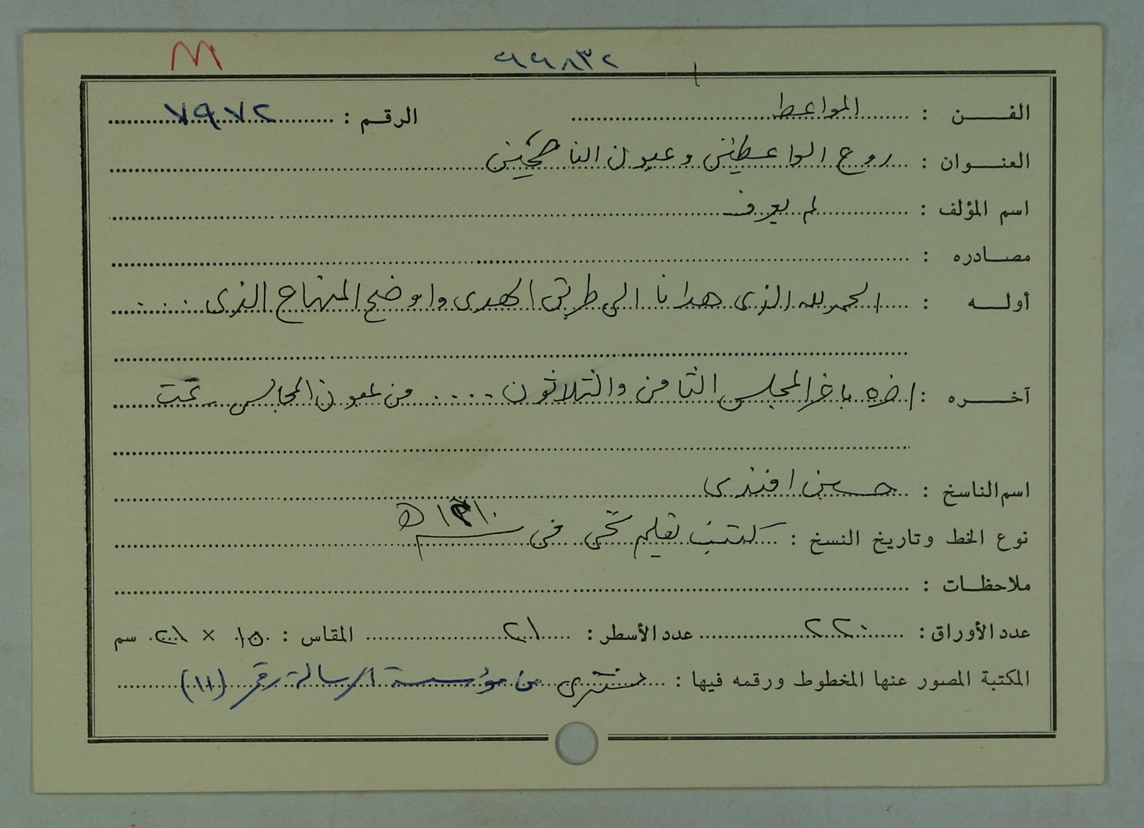 M ٩٩٨٣٢
الفن : المواعظ الرقم : ٧٩٧٢
العنوان : روح الواعظين وعيون الناصحين
اسم المؤلف : لم يعرف
مصادره :
أوله : الحمد لله الذى هدانا الى طريق الهدى واوضح المنهاج الذى ....
آخره : اخره باخر المجلس الثامن والثلاثون .... من عيون المجالس تمت
اسم الناسخ : حسين افندى
نوع الخط وتاريخ النسخ : كتبت بقلم نسخى فى سنة هـ
ملاحظات :
عدد الأوراق : ٢٢٠ عدد الأسطر : ٢١ المقاس : ١٥ × ٢١ سم
المكتبة المصور عنها المخطوط ورقمه فيها : مشترى من مؤسسة الرسالة رقم (١٨)